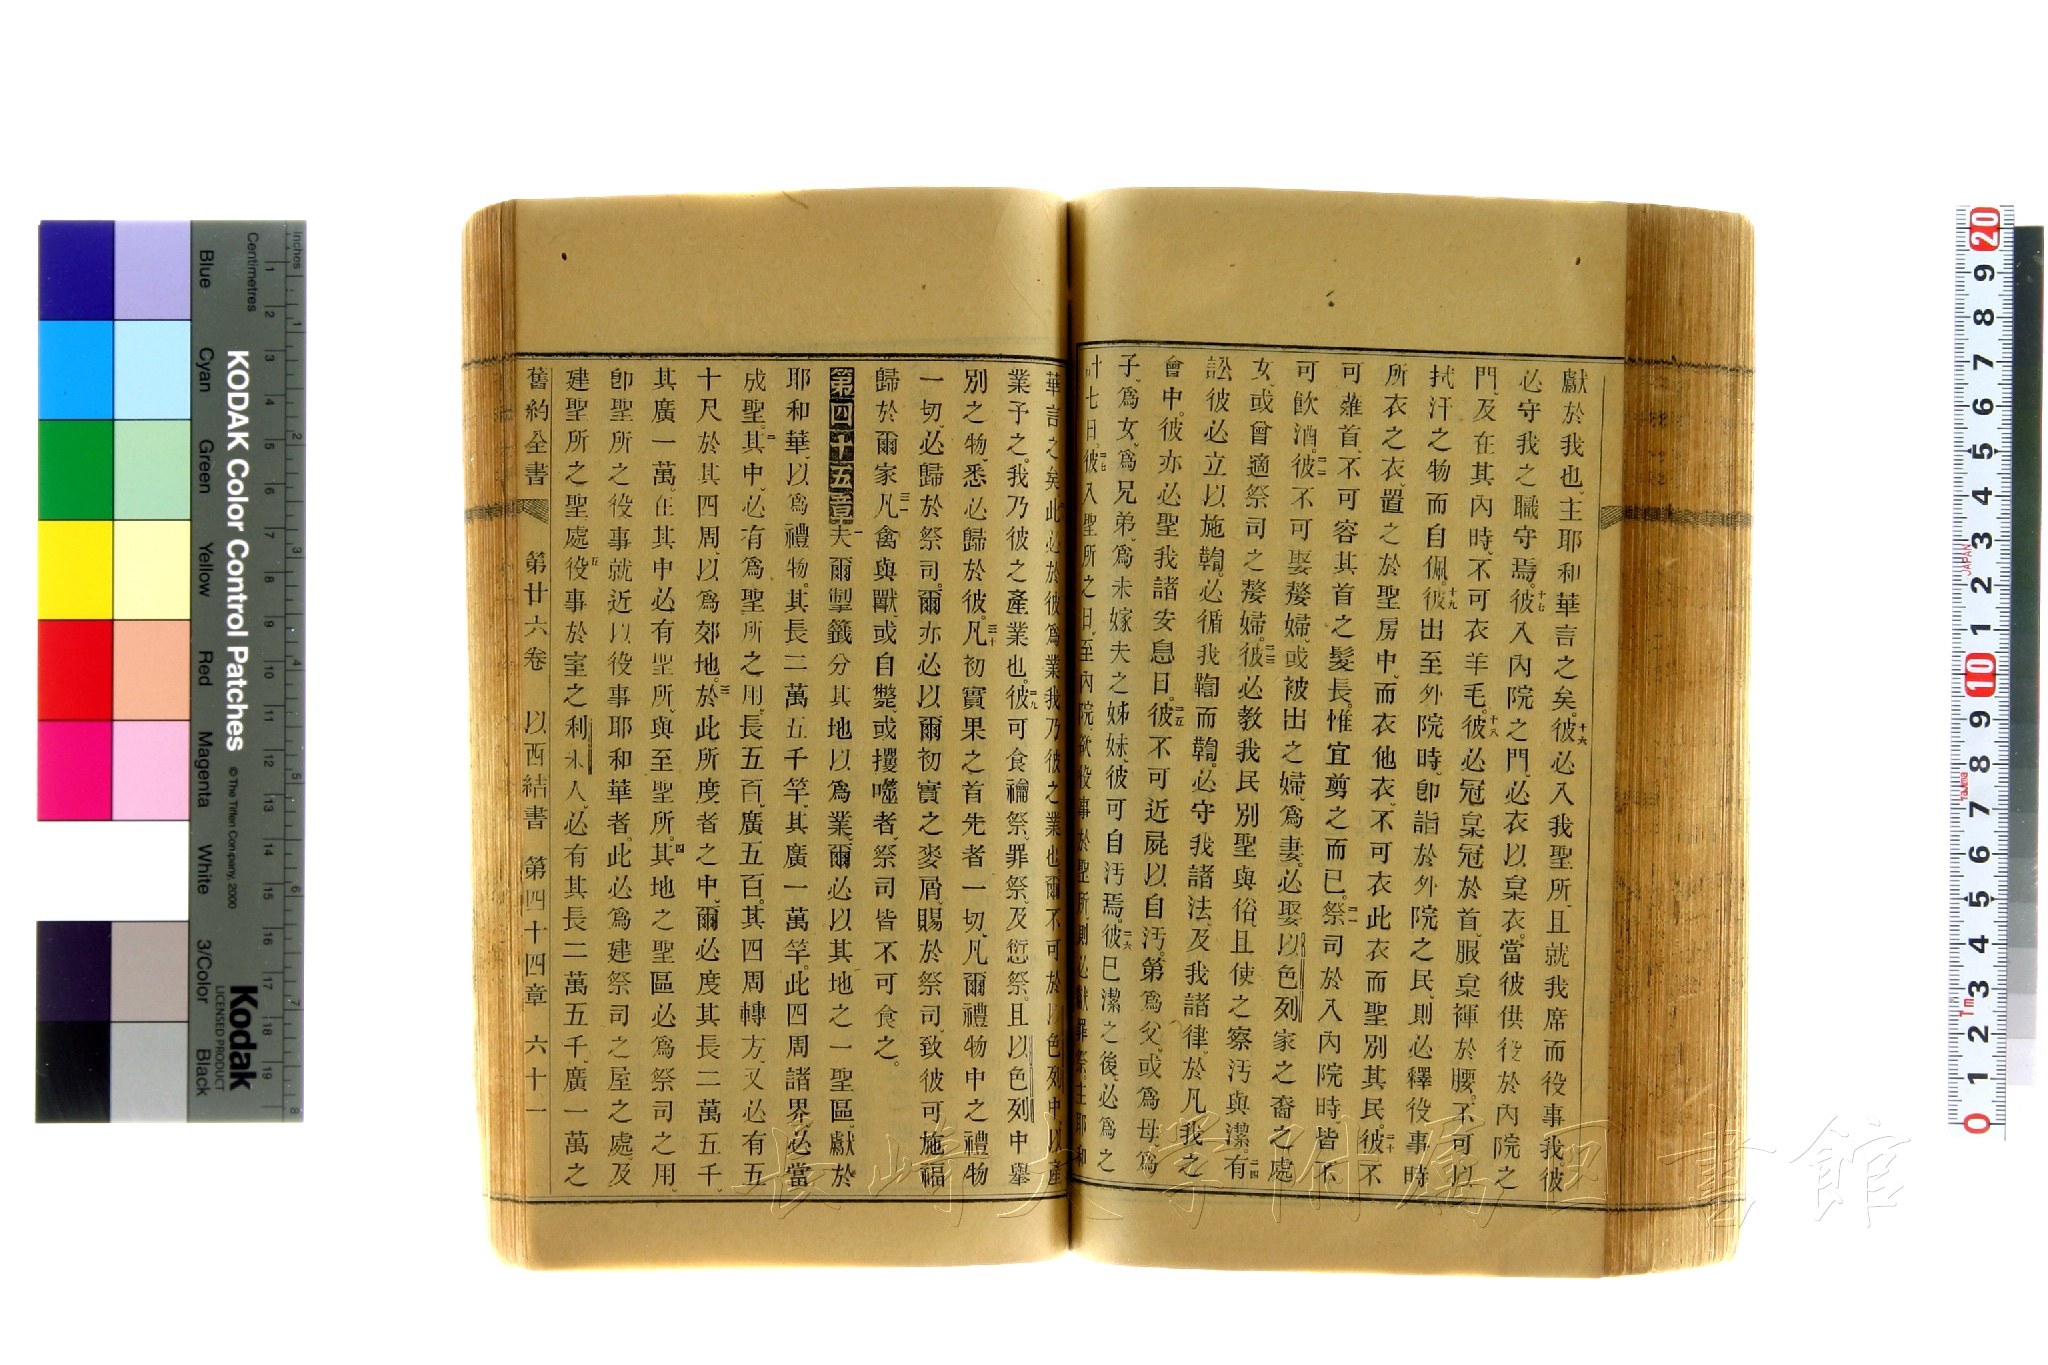 獻於我也、主耶和華言之矣。十六彼必入我聖所、且就我席而役事我、彼
必守我之職守焉。十七彼入內院之門、必衣以枲衣。當彼供役於內院之
門、及在其內時、不可衣羊毛。十八彼必冠枲冠於首、服枲褌於腰。不可以
拭汗之物而自佩。十九彼出至外院時、卽詣於外院之民、則必釋役事時
所衣之衣、置之於聖房中、而衣他衣、不可衣此衣而聖別其民。二十彼不
可薙首、不可容其首之髮長。惟宜剪之而已。二一祭司於入內院時、皆不
可飮酒。二二彼不可娶嫠婦、或被出之婦、爲妻。必娶以色列家之裔之處
女、或曾適祭司之嫠婦。二三彼必教我民別聖與俗、且使之察汚與潔。二四有
訟彼必立以施鞫。必循我鞫而鞫。必守我諸法、及我諸律、於凡我之
會中。彼亦必聖我諸安息日。二五彼不可近屍以自汚。第爲父、或爲母、爲
子、爲女、爲兄弟、爲未嫁夫之姊妹、彼可自汚焉。二六彼已潔之後、必爲之
計七日。二七彼入聖所之日、至內院、欲役事於聖所、則必獻罪祭。主耶和
華言之矣。此必於彼爲業、我乃彼之業也。爾不可於以色列中以產
業予之。我乃彼之產業也。二九彼可食禴祭、罪祭、及愆祭。且以色列中舉
別之物、悉必歸於彼。三十凡初實果之首先者一切、凡爾禮物中之禮物
一切、必歸於祭司。爾亦必以爾初實之麥屑、賜於祭司、致彼可施福
歸於爾家。三一凡禽與獸、或自斃、或攫噬者、祭司皆不可食之。
第四十五章一夫爾掣籤分其地以爲業、爾必以其地之一聖區、獻於
耶和華、以爲禮物。其長二萬五千竿、其廣一萬竿。此四周諸界、必當
成聖。二其中、必有爲聖所之用、長五百、廣五百。其四周轉方、又必有五
十尺於其四周、以爲郊地。三於此所度者之中、爾必度其長二萬五千、
其廣一萬。在其中必有聖所、與至聖所。四其地之聖區必爲祭司之用、
卽聖所之役事就近以役事耶和華者。此必爲建祭司之屋之處、及
建聖所之聖處。五役事於室之利未人、必有其長二萬五千、廣一萬之
舊約全書 第廿六卷 以西結書 第四十四章 六十一
長崎大学附属図書館
KODAK Color Control Patches © The Tiffen Company, 2000
Kodak LICENSED PRODUCT
Inches
Centimetres
Blue Cyan Green Yellow Red Magenta White 3/Color Black
1 2 3 4 5 6 7 8 9 10 11 12 13 14 15 16 17 18 19
1 2 3 4 5 6 7 8
20 9 8 7 6 5 4 3 2 1 10 9 8 7 6 5 4 3 2 1 0
JAPAN